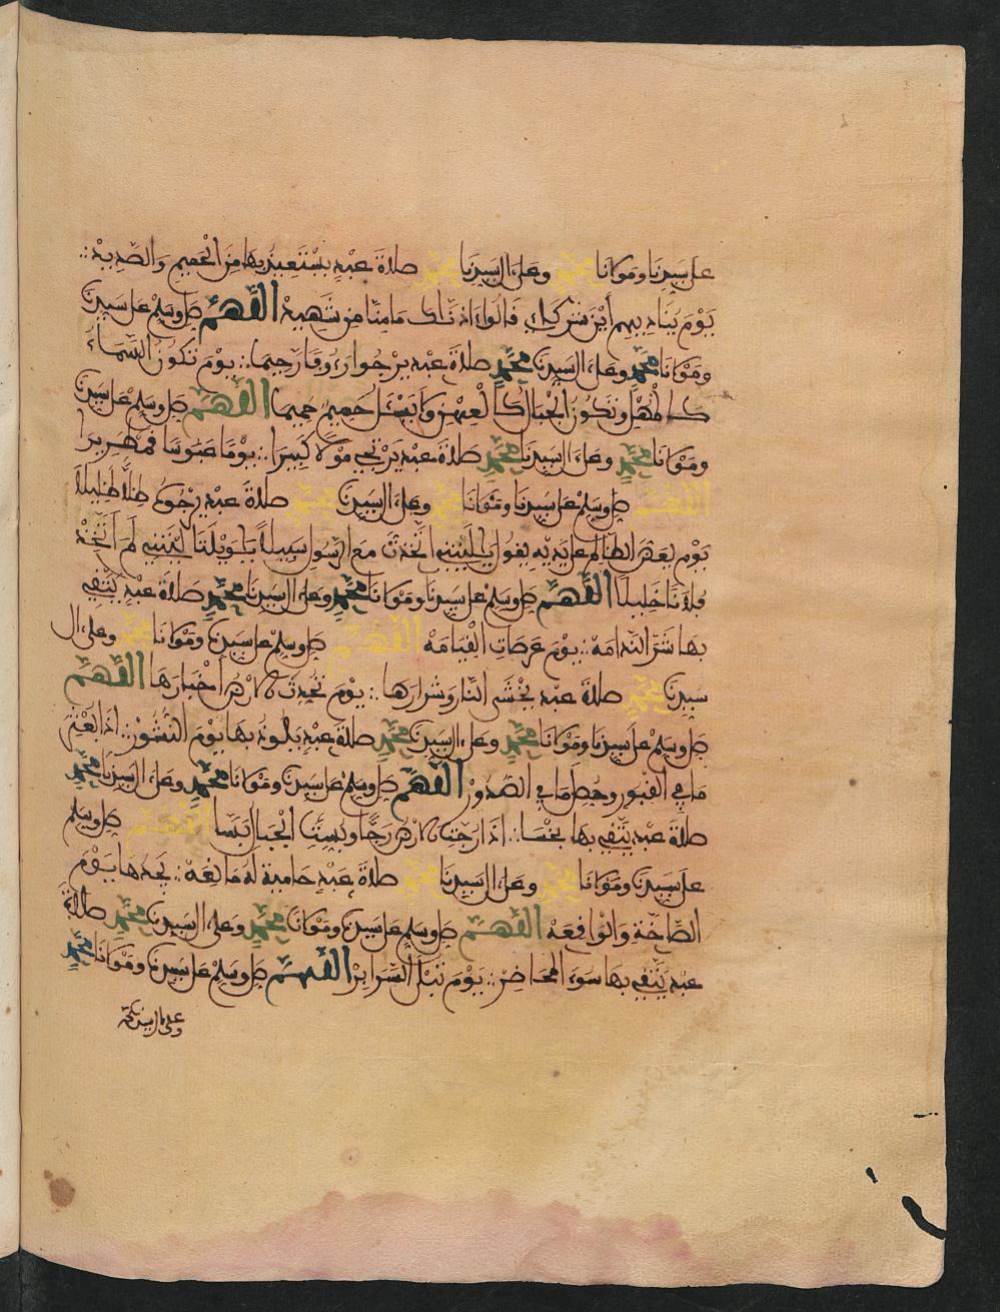 على سيدنا ومولانا محمد وعلى ءال سيدنا محمد صلاة عبد يستعيذ بها من الحميم والصديد ∴
يوم يناديهم أين شركاءي قالوا ءاذناك ما منا من شهيد اللهم صل وسلم على سيدنا
ومولانا محمد وعلى ءال سيدنا محمد صلاة عبد يرجوا رءوفا رحيما ∴ يوم تكون السماء
كالمهل وتكون الجبال كالعهن ولا يسئل حميم حميما اللهم صل وسلم على سيدنا
ومولانا محمد وعلى ءال سيدنا محمد صلاة عبد يرتجي مولا كبيرا ∴ يوما عبوسا قمطريرا
اللهم صل وسلم على سيدنا ومولانا محمد وعلى ءال سيدنا محمد صلاة عبد يرجوك ظلا ظليلا
يوم يعض الظالم على يديه يقول يليتني اتخذت مع الرسول سبيلا يويلتا ليتني لم أتخذ
فلانا خليلا اللهم صل وسلم على سيدنا ومولانا محمد وعلى ءال سيدنا محمد صلاة عبد يتقي
بها شر الندامه ∴ يوم عرصات القيامه اللهم صل وسلم على سيدنا ومولانا محمد وعلى ءال
سيدنا محمد صلاة عبد يخشى النار وشرارها ∴ يوم تحدث الارض أخبارها اللهم
صل وسلم على سيدنا ومولانا محمد وعلى ءال سيدنا محمد صلاة عبد يلوذ بها يوم النشور ∴ اذا بعثر
ما في القبور وحصل ما في الصدور اللهم صل وسلم على سيدنا ومولانا محمد وعلى ءال سيدنا محمد
صلاة عبد يتقي بها بخسا ∴ اذا رجت الارض رجا وبست الجبال بسا اللهم صل وسلم
على سيدنا ومولانا محمد وعلى ءال سيدنا محمد صلاة عبد حامية له مانعة ∴ يجدها يوم
الصاخة والواقعه اللهم صل وسلم على سيدنا ومولانا محمد وعلى ءال سيدنا محمد صلاة
عبد يتقي بها سوء المحاضر ∴ يوم تبلى السراير اللهم صل وسلم على سيدنا ومولانا محمد
وعلى ءال سيدنا محمد